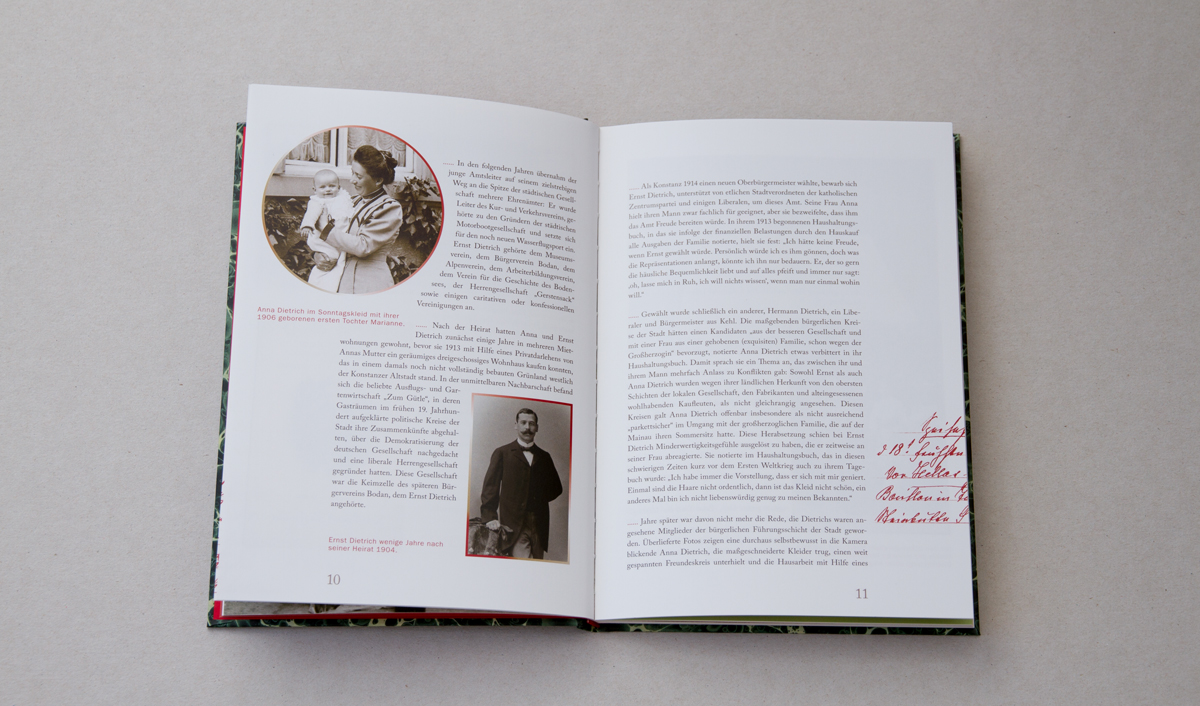 ..... In den folgenden Jahren übernahm der
junge Amtsleiter auf seinem zielstrebigen
Weg an die Spitze der städtischen Gesell-
schaft mehrere Ehrenämter: Er wurde
Leiter des Kur- und Verkehrsvereins, ge-
hörte zu den Gründern der städtischen
Motorbootgesellschaft und setzte sich
für den noch neuen Wasserflugsport ein.
Ernst Dietrich gehörte dem Museums-
verein, dem Bürgerverein Bodan, dem
Alpenverein, dem Arbeiterbildungsverein,
dem Verein für die Geschichte des Boden-
sees, der Herrengesellschaft „Gerstensack“
sowie einigen caritativen oder konfessionellen
Vereinigungen an.
Anna Dietrich im Sonntagskleid mit ihrer
1906 geborenen ersten Tochter Marianne.
..... Nach der Heirat hatten Anna und Ernst
Dietrich zunächst einige Jahre in mehreren Miet-
wohnungen gewohnt, bevor sie 1913 mit Hilfe eines Privatdarlehens von
Annas Mutter ein geräumiges dreigeschossiges Wohnhaus kaufen konnten,
das in einem damals noch nicht vollständig bebauten Grünland westlich
der Konstanzer Altstadt stand. In der unmittelbaren Nachbarschaft befand
sich die beliebte Ausflugs- und Gar-
tenwirtschaft „Zum Gütle“, in deren
Gasträumen im frühen 19. Jahrhun-
dert aufgeklärte politische Kreise der
Stadt ihre Zusammenkünfte abgehal-
ten, über die Demokratisierung der
deutschen Gesellschaft nachgedacht
und eine liberale Herrengesellschaft
gegründet hatten. Diese Gesellschaft
war die Keimzelle des späteren Bür-
gervereins Bodan, dem Ernst Dietrich
angehörte.
Ernst Dietrich wenige Jahre nach
seiner Heirat 1904.
10
..... Als Konstanz 1914 einen neuen Oberbürgermeister wählte, bewarb sich
Ernst Dietrich, unterstützt von etlichen Stadtverordneten der katholischen
Zentrumspartei und einigen Liberalen, um dieses Amt. Seine Frau Anna
hielt ihren Mann zwar fachlich für geeignet, aber sie bezweifelte, dass ihm
das Amt Freude bereiten würde. In ihrem 1913 begonnenen Haushaltungs-
buch, in das sie infolge der finanziellen Belastungen durch den Hauskauf
alle Ausgaben der Familie notierte, hielt sie fest: „Ich hätte keine Freude,
wenn Ernst gewählt würde. Persönlich würde ich es ihm gönnen, doch was
die Repräsentationen anlangt, könnte ich ihn nur bedauern. Er, der so gern
die häusliche Bequemlichkeit liebt und auf alles pfeift und immer nur sagt:
‚oh, lasse mich in Ruh, ich will nichts wissen‘, wenn man nur einmal wohin
will.“
..... Gewählt wurde schließlich ein anderer, Hermann Dietrich, ein Libe-
raler und Bürgermeister aus Kehl. Die maßgebenden bürgerlichen Krei-
se der Stadt hätten einen Kandidaten „aus der besseren Gesellschaft und
mit einer Frau aus einer gehobenen (exquisiten) Familie, schon wegen der
Großherzogin“ bevorzugt, notierte Anna Dietrich etwas verbittert in ihr
Haushaltungsbuch. Damit sprach sie ein Thema an, das zwischen ihr und
ihrem Mann mehrfach Anlass zu Konflikten gab: Sowohl Ernst als auch
Anna Dietrich wurden wegen ihrer ländlichen Herkunft von den obersten
Schichten der lokalen Gesellschaft, den Fabrikanten und alteingesessenen
wohlhabenden Kaufleuten, als nicht gleichrangig angesehen. Diesen
Kreisen galt Anna Dietrich offenbar insbesondere als nicht ausreichend
„parkettsicher“ im Umgang mit der großherzoglichen Familie, die auf der
Mainau ihren Sommersitz hatte. Diese Herabsetzung schien bei Ernst
Dietrich Minderwertigkeitsgefühle ausgelöst zu haben, die er zeitweise an
seiner Frau abreagierte. Sie notierte im Haushaltungsbuch, das in diesen
schwierigen Zeiten kurz vor dem Ersten Weltkrieg auch zu ihrem Tage-
buch wurde: „Ich habe immer die Vorstellung, dass er sich mit mir geniert.
Einmal sind die Haare nicht ordentlich, dann ist das Kleid nicht schön, ein
anderes Mal bin ich nicht liebenswürdig genug zu meinen Bekannten.“
..... Jahre später war davon nicht mehr die Rede, die Dietrichs waren an-
gesehene Mitglieder der bürgerlichen Führungsschicht der Stadt gewor-
den. Überlieferte Fotos zeigen eine durchaus selbstbewusst in die Kamera
blickende Anna Dietrich, die maßgeschneiderte Kleider trug, einen weit
gespannten Freundeskreis unterhielt und die Hausarbeit mit Hilfe eines
Bouillon in
11